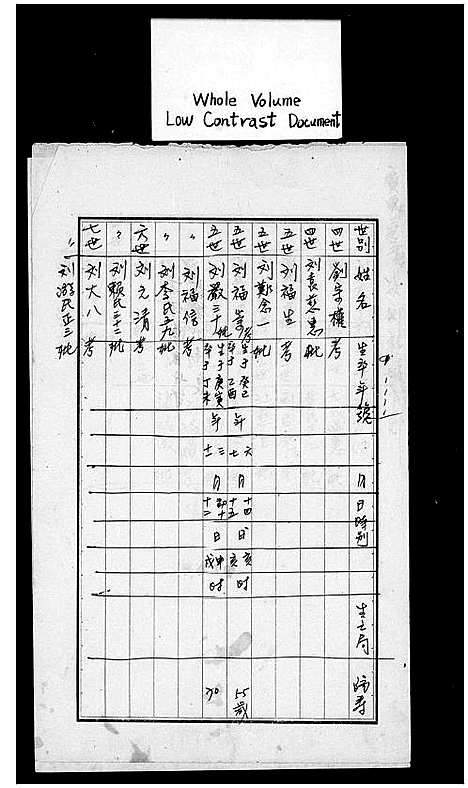 Whole Volume
Low Contrast Document
世別 姓名 生卒年號 月 日 時別 生亡局 歸寿
四世 劉宗權 考
四世 刘袁慈惠 妣
五世 刘福生 考
五世 刘鄭念一 妣
五世 刘福崇 考 生于癸巳 卒于乙酉 年 六 七 月 十四 十五 日 亥 亥 时 55歲
五世 刘嚴三十 妣 生于庚寅 卒于丁未 年 三 十二 月 初十 十二 日 申 戌 时 70
〃 刘福信 考
〃 刘李氏五九 妣
六世 刘元清 考
〃 刘賴氏三十二 妣
七世 刘大八 考
〃 刘游氏正三 妣